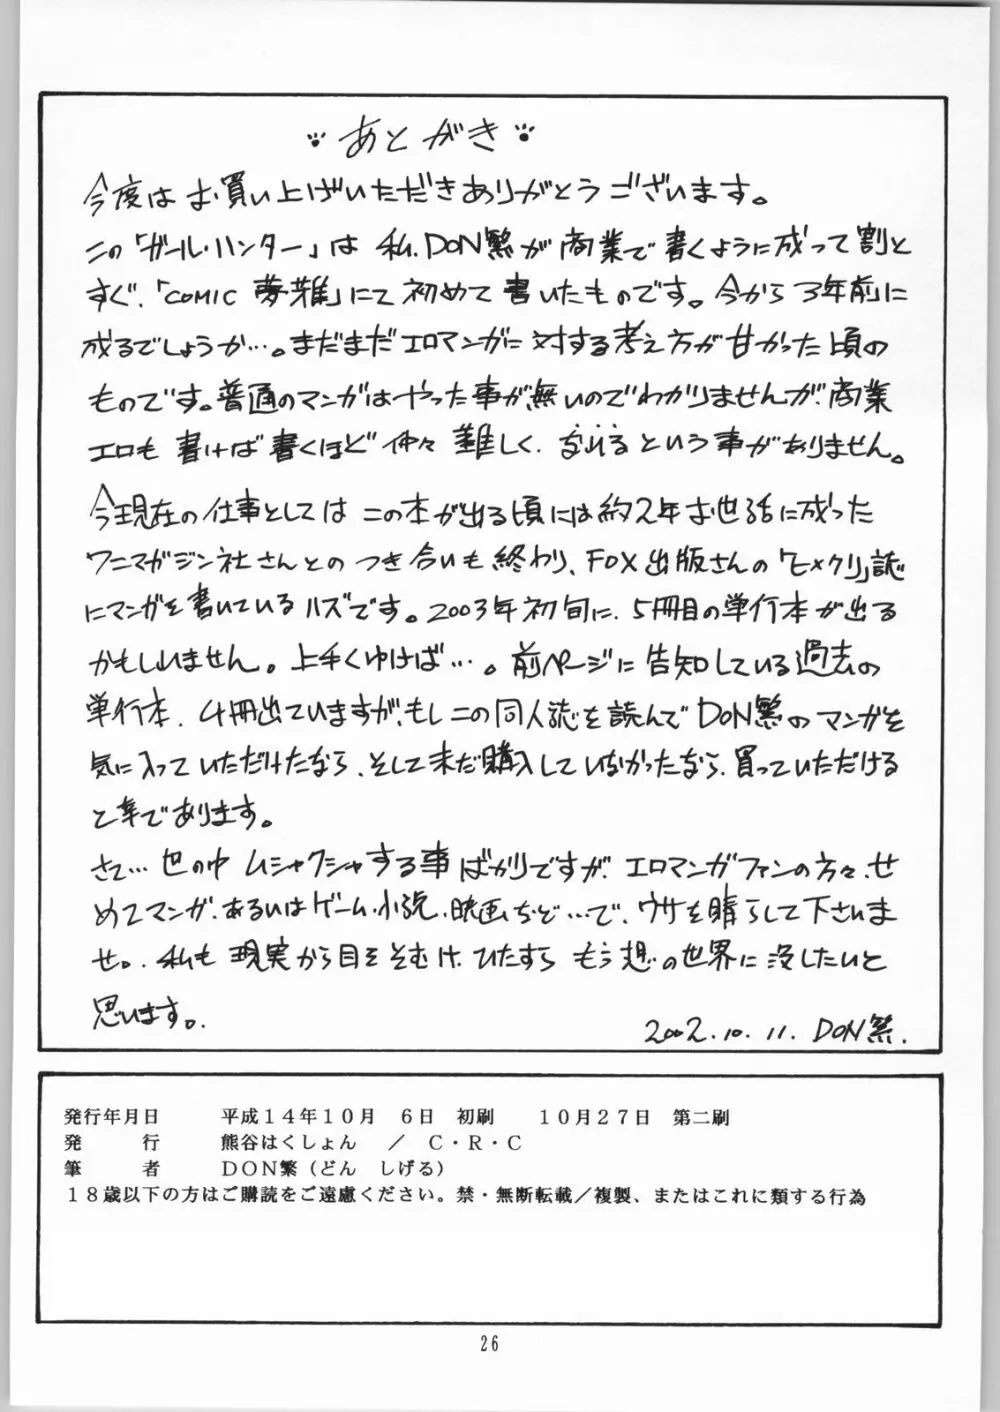 あとがき
今度はお買い上げいただきありがとうございます。
この「ガール・ハンター」は私、DON繁が商業で書くように成って割と
すぐ、「COMIC 夢雅」にて初めて書いたものです。今から3年前に
成るでしょうか…。まだまだエロマンガに対する考え方が甘かった頃の
ものです。普通のマンガはやった事が無いのでわかりませんが、商業
エロも書けば書くほど仲々難しく、なれるという事がありません。
今現在の仕事としてはこの本が出る頃には約2年お世話に成った
ワニマガジン社さんとのつき合いも終わり、FOX出版さんの「ヒメクリ」誌
にマンガを書いているハズです。2003年初旬に、5冊目の単行本が出る
かもしれません。上手くゆけば…。前ページに告知している過去の
単行本、4冊出ていますが、もしこの同人誌を読んでDON繁のマンガを
気に入っていただけたなら、そして未だ購入していなかったなら、買っていただける
と幸であります。
さて…世の中ムシャクシャする事ばかりですが、エロマンガファンの方々、せ
めてマンガ、あるいはゲーム、小説、映画など…で、ウサを晴らして下さいま
せ。私も現実から目をそむけ、ひたすらもう想の世界に没したいと
思います。
2002.10.11. DON繁.
発行年月日 平成14年10月 6日 初刷 10月27日 第二刷
発 行 熊谷はくしょん ／ C・R・C
筆 者 DON繁（どん しげる）
18歳以下の方はご購読をご遠慮ください。禁・無断転載／複製、またはこれに類する行為
26